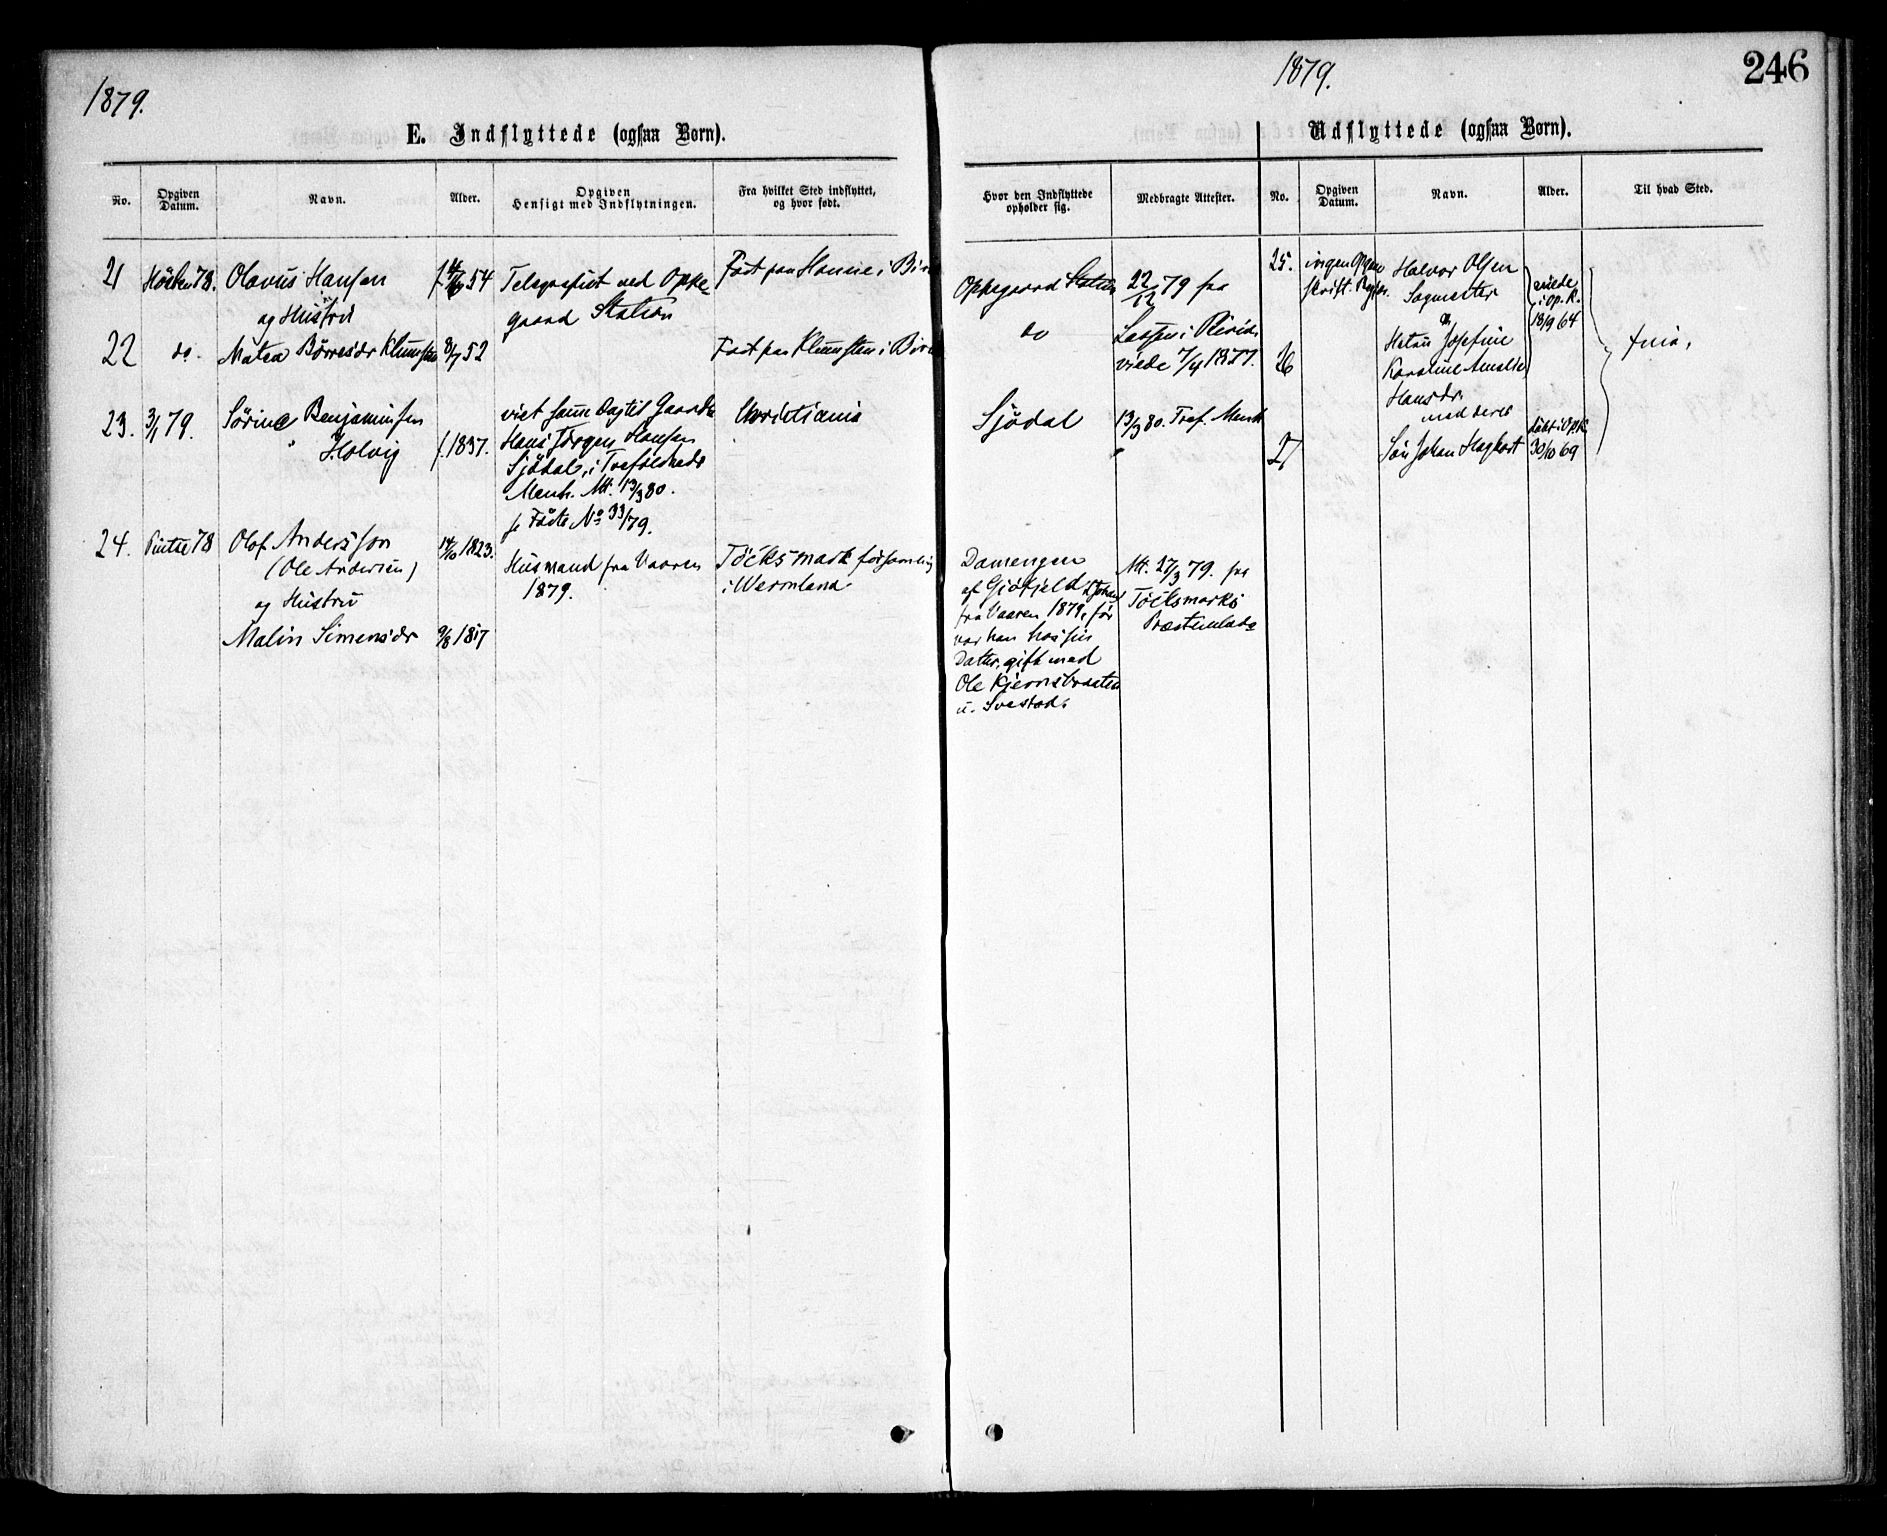 1879.
E. Indflyttede (ogsaa Børn).
No.
Opgiven Datum.
Navn.
Alder.
Opgiven Hensigt med Indflytningen.
Fra hvilket Sted indflyttet, og hvor født.
21 Høsten 78. Olavus Hansen
og Hustru
54
Telegrafist ved Oppe-
gaard Station
Født paa i
22 do. Matea Børresdr 8/7 52
Født paa i
23. 3/1 79. Sørine Benjaminsen
Holvig
f. 1837.
viet samme Dag til
Hans Jørgen Hansen
Sjødal, i Trefoldheds
Menh. Att. 13/3 80.
se No 33/79.
Christiania
24. 78 Olof Andersson
(Ole Andersen)
og Hustru
Malin Simensdr
14/10 1823.
9/8 1817
Husmand fra Vaaren
1879.
Töcksmark församling
i Wermland
1879.
246
Udflyttede (ogsaa Børn).
Hvor den Indflyttede opholder sig.
Medbragte Attester.
No.
Opgiven Datum.
Navn.
Alder.
Til hvad Sted.
Oppegaard Station
do
22/12 79 fra
i
viede 7/4 1877.
Sjødal
13/3 80. Tref. Menh
Damengen
af Gjøfjeld
fra Vaaren 1879, før
var han hos sin
Datter, gift med
Ole Kjernsbraaten
u. Svestad.
Att. 27/3 79. fra
Töcksmarks
Præstembede
25. ingen
Halvor Olsen
Sagmester
viede
i Op. K.
18/9 64
26
Josefine
Karoline Amalie
Hansdr.
med deres
27
Søn Johan
døbt i Op K
30/10 69